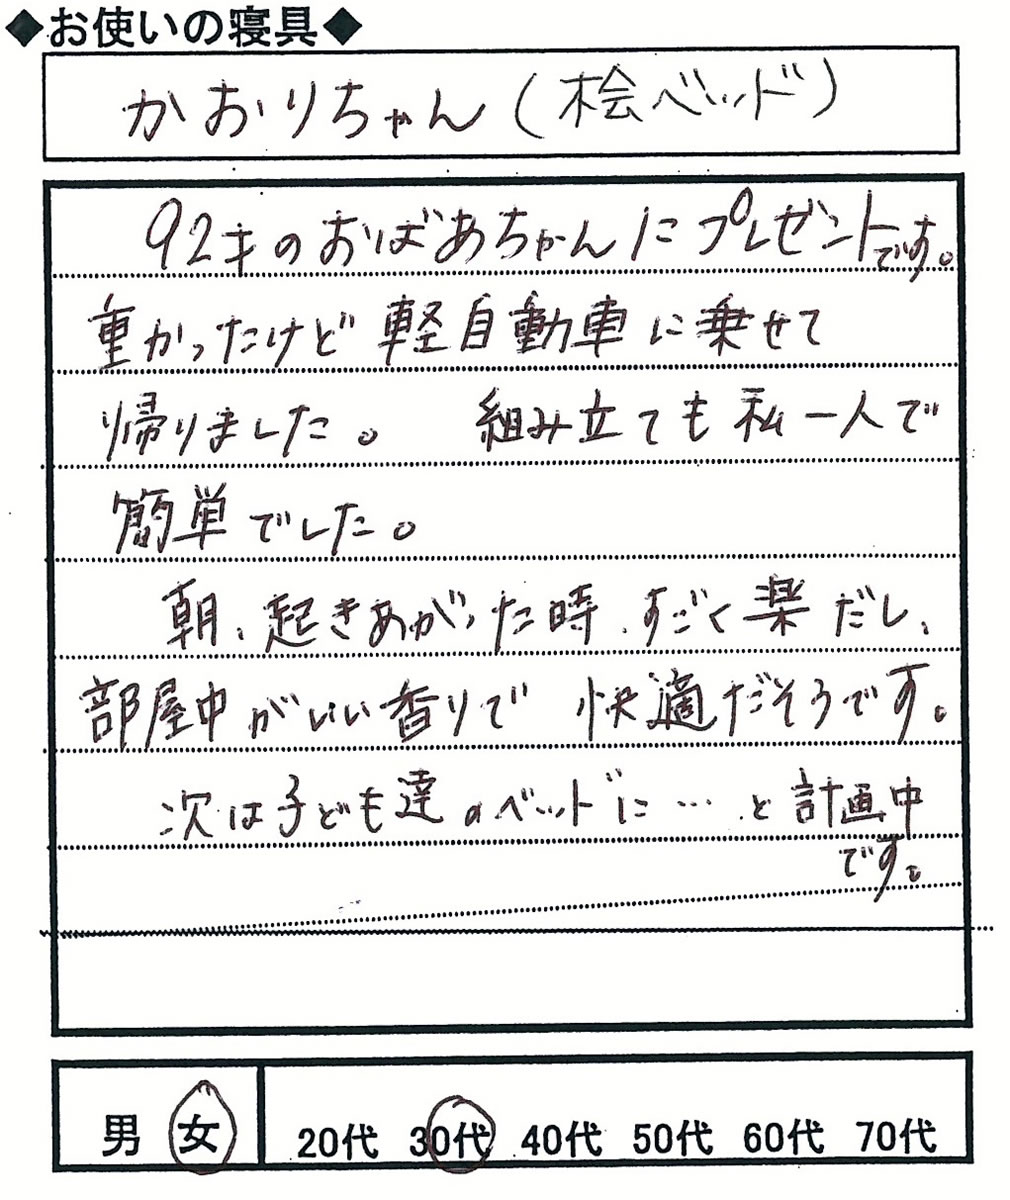 ◆お使いの寝具◆
かおりちゃん(桧ベッド)
92才のおばあちゃんにプレゼントです。
重かったけど軽自動車に乗せて
帰りました。 組み立ても私一人で
簡単でした。
朝、起きあがった時、すごく楽だし、
部屋中がいい香りで 快適だそうです。
次は子ども達のベットに…と計画中
です。
男 女 20代 30代 40代 50代 60代 70代